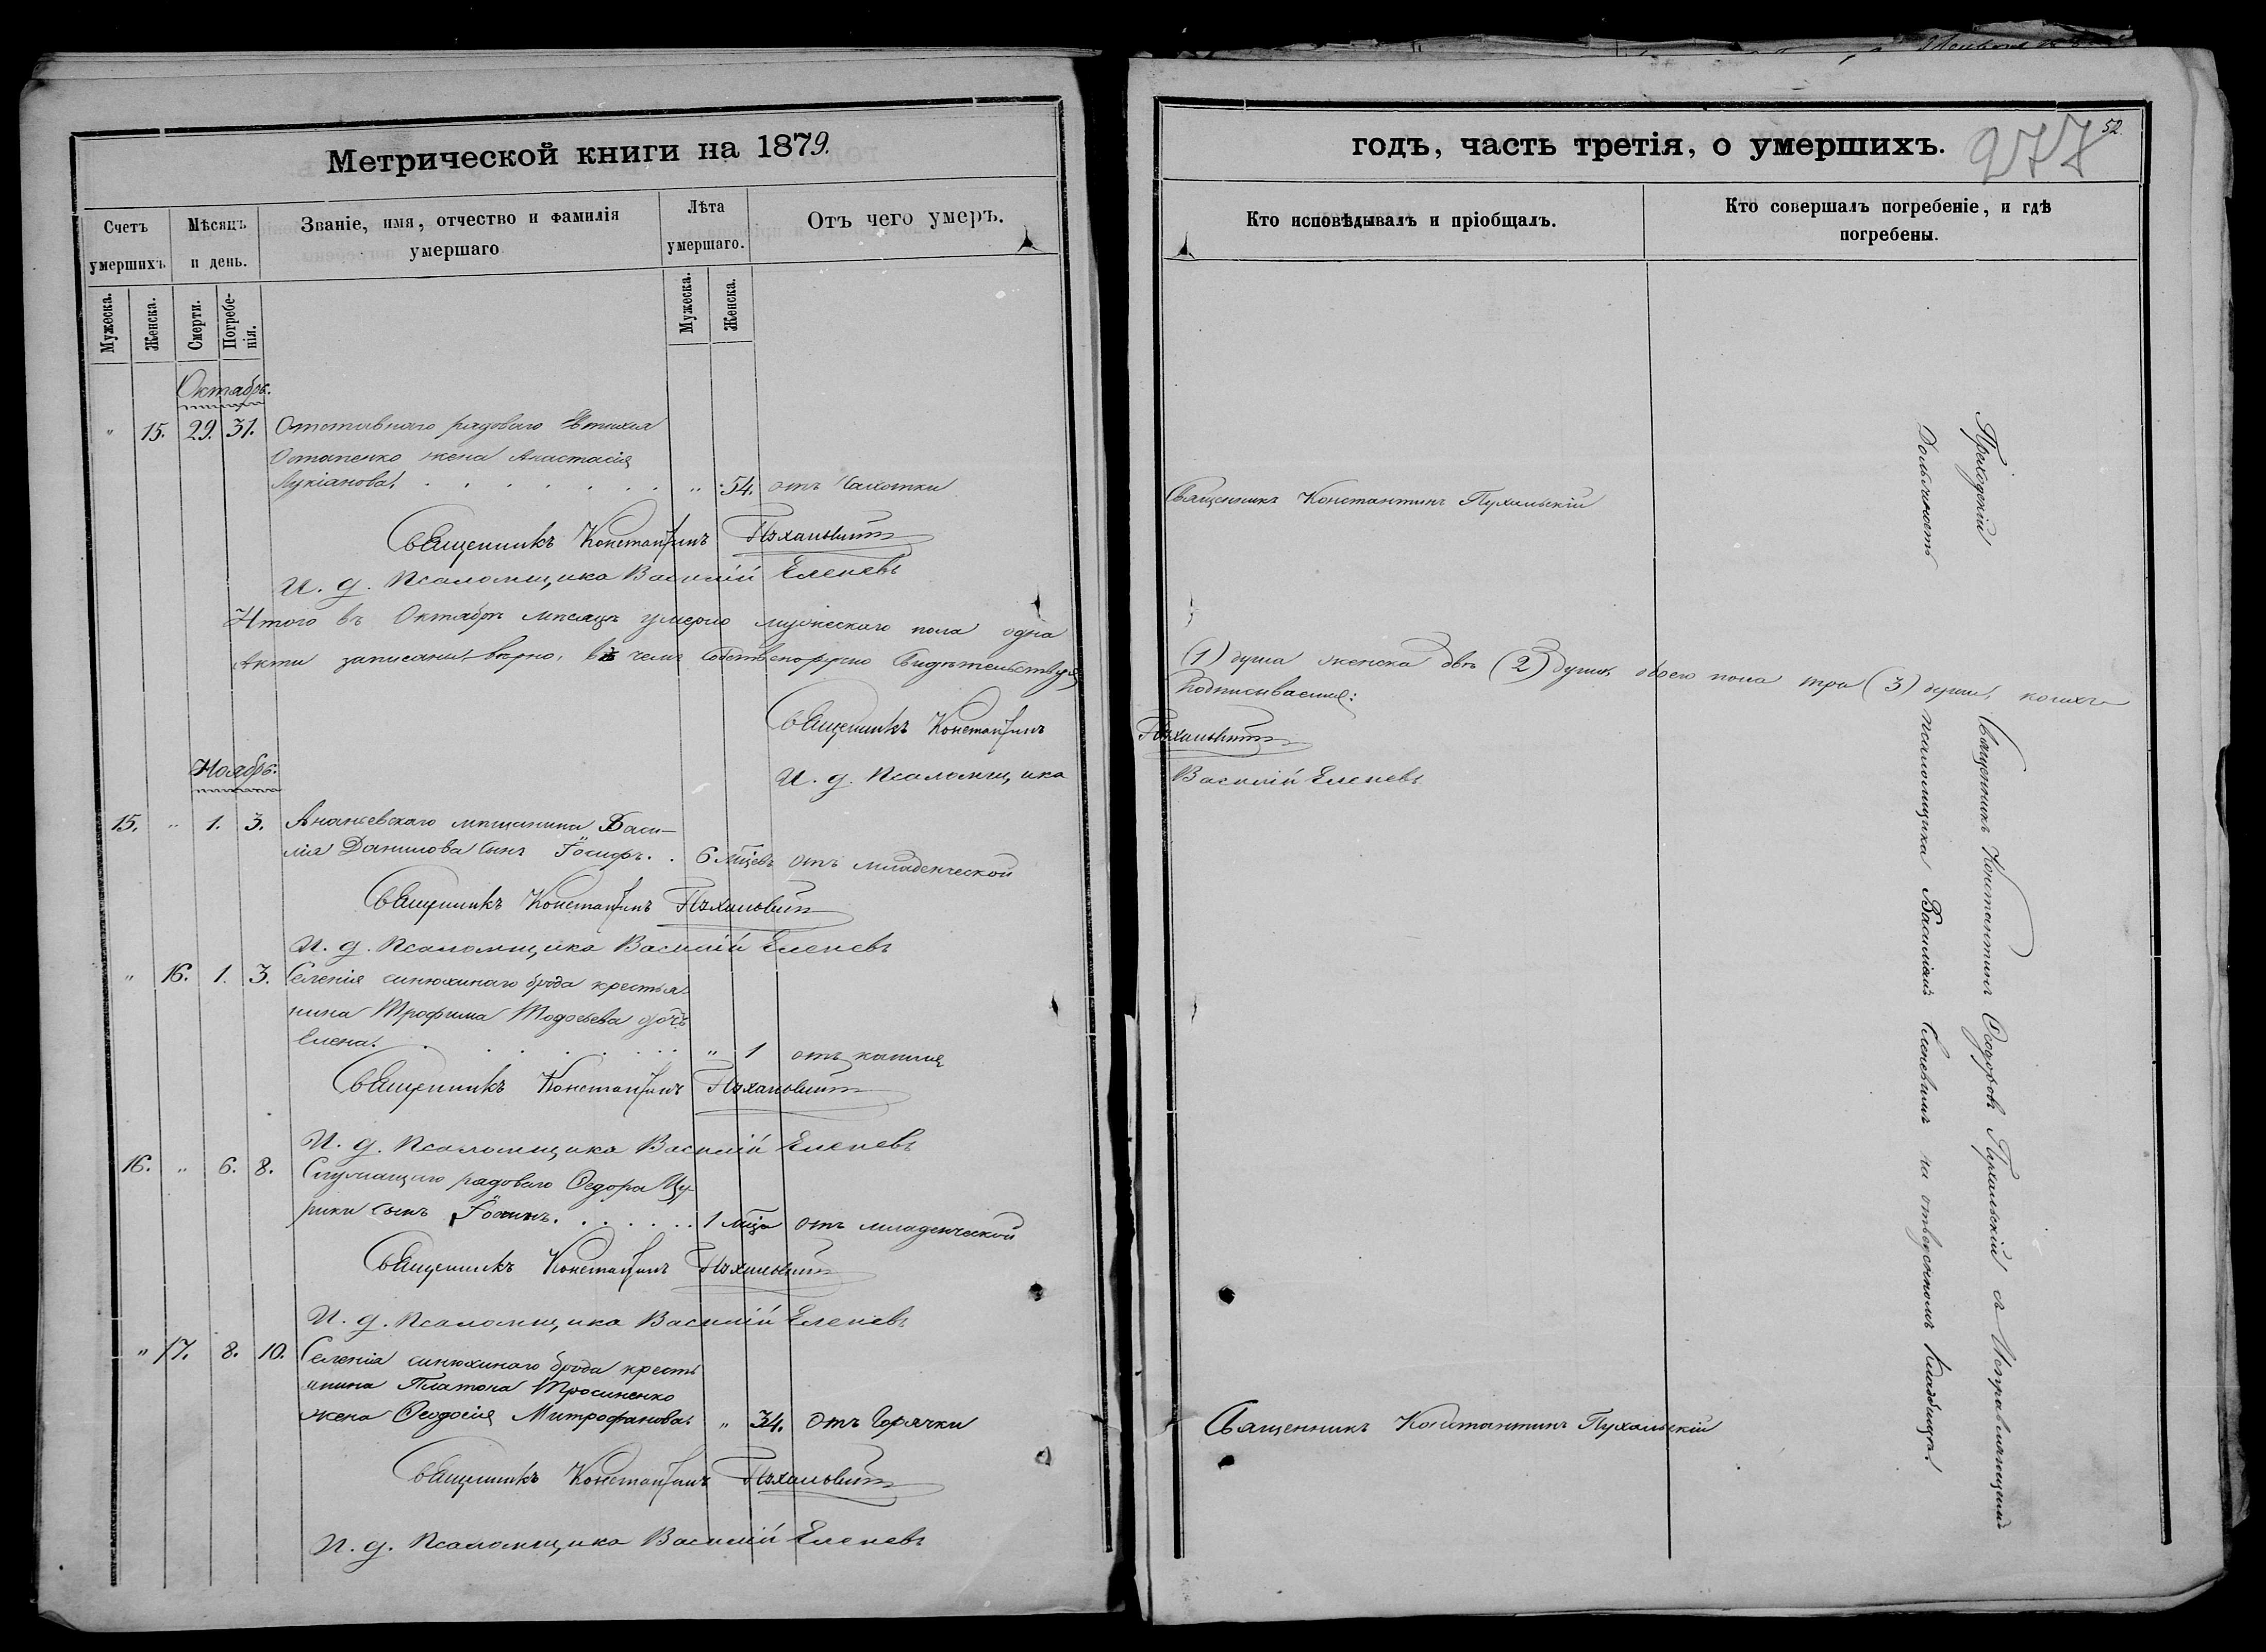 Метрической книги на 1879.
Счетъ умершихъ.
Мѣсяцъ и день.
Званіе, имя, отчество и фамилія умершаго
Лѣта умершаго.
Отъ чего умеръ.
Мужеска.
Женска.
Смерти.
Погребенія.
Мужеска.
Женска.
Октябрь.
" 15. 29. 31. Отставнаго рядоваго Евтихія
Остапенко жена Анастасія
Лукіанова. " 54. отъ Чахотки
Священникъ Константинъ Пухальскій
И. д. Псаломщика Василій Еленевъ
Итого въ Октябрѣ мѣсяцѣ умерло мужескаго пола одна
Акты записаны вѣрно, въ чемъ собственоручно Свидѣтельствуя
Священникъ Константинъ
И. д. Псаломщика
Ноябрь.
15. " 1. 3. Ананьевскаго мѣщанина Васи-
лія Данилова сынъ Іосифъ. 6 мѣцевъ отъ младенческой
Священникъ Константинъ Пухальскій
И. д. Псаломщика Василій Еленевъ
" 16. 1. 3. Селенія синюхинаго брода крестья-
нина Трофима Тодосьева дочь
Елена. " 1 отъ кашля
Священникъ Константинъ Пухальскій
И. д. Псаломщика Василій Еленевъ
16. " 6. 8. Служащаго рядоваго Ѳедора Цу-
рики сынъ 1 мѣца отъ младенческой
Священникъ Константинъ Пухальскій
И. д. Псаломщика Василій Еленевъ
" 17. 8. 10. Селенія синюхинаго брода кресть
янина Платона Тросиненко
жена Ѳеодосія Митрофанова. " 34. отъ Горячки
Священникъ Константинъ Пухальскій
И. д. Псаломщика Василій Еленевъ
годъ, часть третія, о умершихъ.
277
52.
Кто исповѣдывалъ и пріобщалъ.
Кто совершалъ погребеніе, и гдѣ погребены.
Священникъ Константинъ Пухальскій
(1) душа женска двѣ (2) души, обоего пола три (3) души, коихъ
подписываемся:
Пухальскій
Василій Еленевъ
Священникъ Константинъ Пухальскій
Приходскій Священникъ Константинъ Ѳеодоровъ Пухальскій съ Исправляющимъ
Должность псаломщика Василіемъ Еленевымъ на отведенномъ Кладбищѣ.